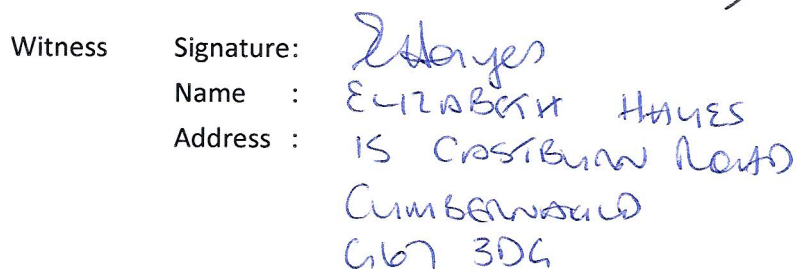 Witness Signature: EHayes
Name : ELIZABETH HAYES
Address : 15 CASTBURN ROAD
CUMBERNAULD
G67 3DG